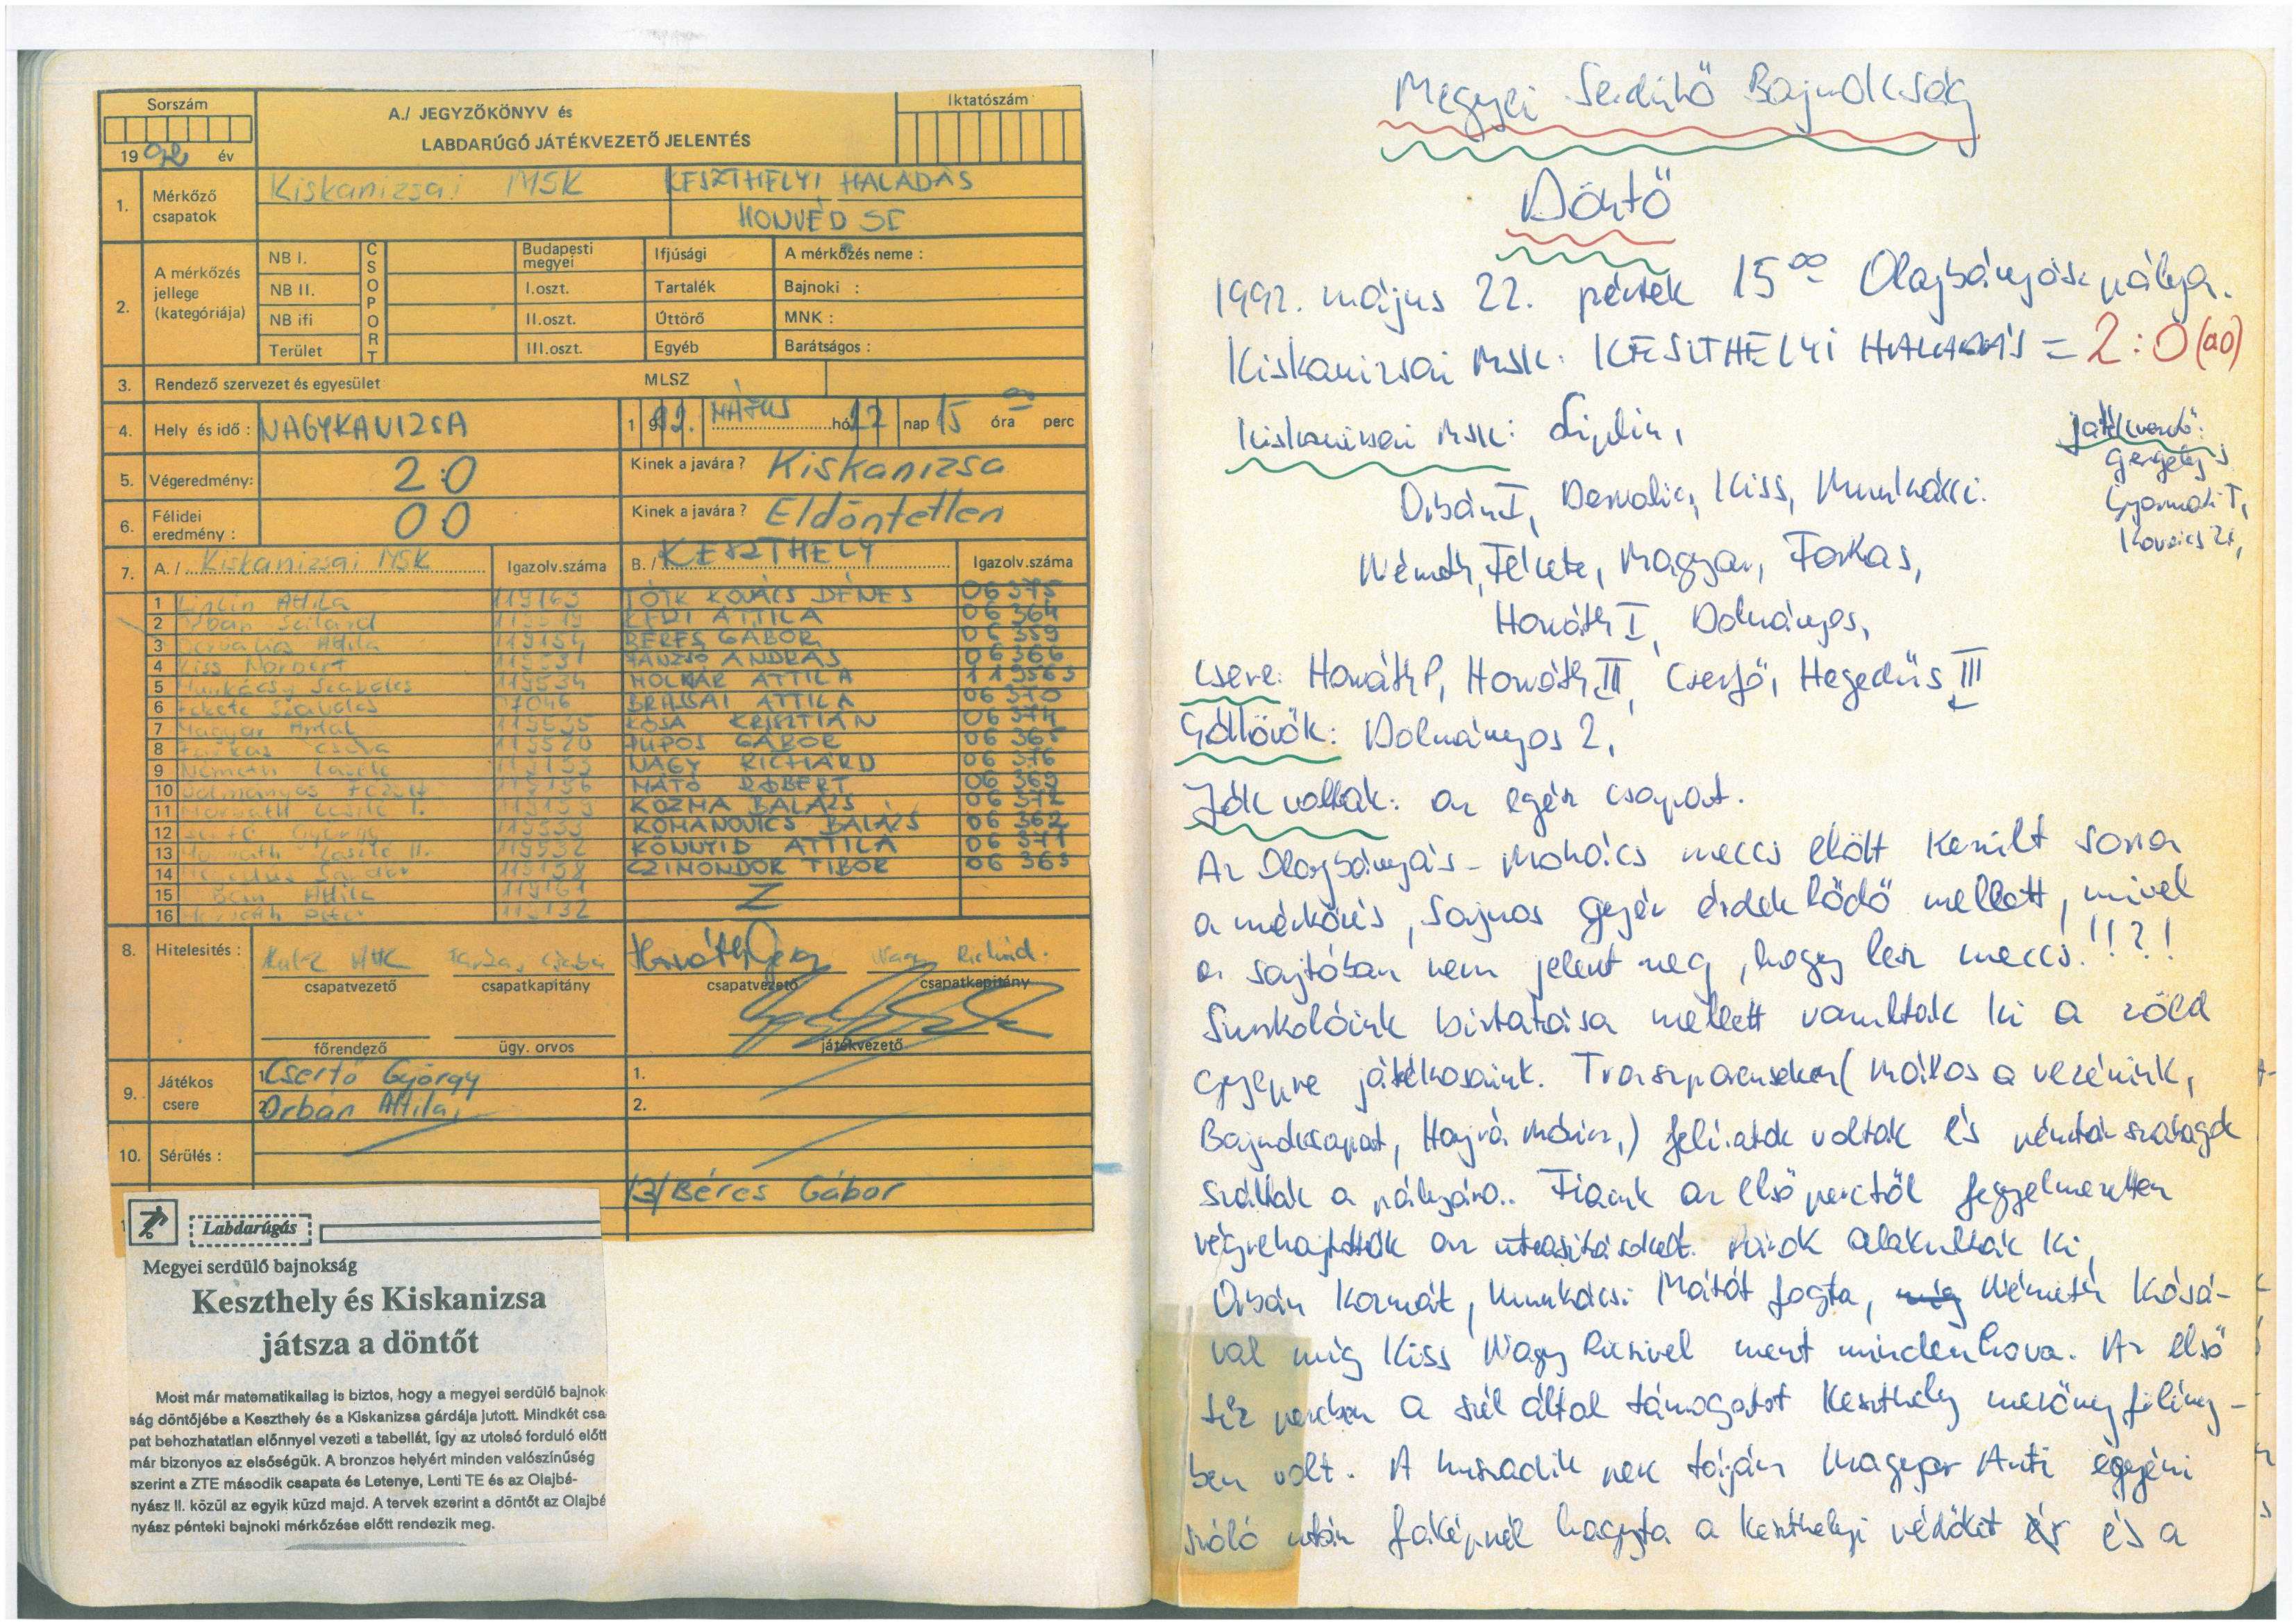 Sorszám
1992 év
A./ JEGYZŐKÖNYV és
LABDARÚGÓ JÁTÉKVEZETŐ JELENTÉS
Iktatószám
1. Mérkőző csapatok
Kiskanizsai MSK
KESZTHELYI HALADÁS
HONVÉD SE
2. A mérkőzés jellege (kategóriája)
CSOPORT
NB I. Budapesti megyei Ifjúsági A mérkőzés neme :
NB II. I.oszt. Tartalék Bajnoki :
NB ifi II.oszt. Úttörő MNK :
Terület III.oszt. Egyéb Barátságos :
3. Rendező szervezet és egyesület MLSZ
4. Hely és idő : NAGYKANIZSA 1992. MÁJUS hó 22 nap 15 óra 00 perc
5. Végeredmény: 2:0 Kinek a javára ? Kiskanizsa
6. Félidei eredmény : 0:0 Kinek a javára ? Eldöntetlen
7. A./ Kiskanizsai MSK Igazolv.száma B./ KESZTHELY Igazolv.száma
1 Liplin Attila 119163 TÓTH KOVÁCS DÉNES 06 375
2 Orbán Szilárd ATTILA 06 364
3 Dervalics Attila 119154 BÉRES GÁBOR 06 359
4 Kiss Norbert ANDRÁS 06 366
5 Munkácsy Szabolcs 119534 MOLNÁR ATTILA 113563
6 Fekete Szabolcs 07046 BRASSAI ATTILA 06 370
7 Magyar Antal 119535 KÓSA KRISZTIÁN 06 374
8 Farkas Csaba 119520 PUPOS GÁBOR 06 365
9 Németh László 119153 NAGY RICHÁRD 06 376
10 Dolmányos József 119156 MÁTÓ RÓBERT 06 369
11 Horváth László I. 119159 KOZMA BALÁZS 06 372
12 Csertő György 119533 KOMANOVICS BALÁZS 06 362
13 Horváth László II. 119532 KÖNNYID ATTILA 06 371
14 Hegedűs Sándor 119158 CZIMONDOR TIBOR 06 363
15 Attila 119161
16 Horváth Péter 119132
8. Hitelesités :
Horváth Nagy Richárd.
csapatvezető csapatkapitány csapatvezető csapatkapitány
főrendező ügy. orvos játékvezető
9. Játékos csere
1. Csertő György 1.
2. Orbán Attila 2.
10. Sérülés :
13/ Béres Gábor
Labdarúgás
Megyei serdülő bajnokság
Keszthely és Kiskanizsa
játsza a döntőt
Most már matematikailag is biztos, hogy a megyei serdülő bajnok-
ság döntőjébe a Keszthely és a Kiskanizsa gárdája jutott. Mindkét csa-
pat behozhatatlan előnnyel vezeti a tabellát, így az utolsó forduló előtt
már bizonyos az elsőségük. A bronzos helyért minden valószínűség
szerint a ZTE második csapata és Letenye, Lenti TE és az Olajbá-
nyász II. közül az egyik küzd majd. A tervek szerint a döntőt az Olajbá-
nyász pénteki bajnoki mérkőzése előtt rendezik meg.
Megyei Serdülő Bajnokság
Döntő
1992. május 22. péntek 15 00 Olajbányász pálya.
Kiskanizsai MSK: KESZTHELYI HALADÁS = 2:0 (0:0)
Kiskanizsai MSK: Liplin,
Orbán I, Dervalics, Kiss, Munkácsi
Németh, Fekete, Magyar, Farkas,
Horváth I, Dolmányos,
Játékvezető:
Gergely J
Gyarmati T,
Kovács Z,
Csere: Horváth P, Horváth III, Csertő, Hegedűs III
Góllövők: Dolmányos 2,
Jók voltak: az egész csapat.
Az Olajbányás - Mohács meccs előtt került sorra
a mérkőzés, sajnos gyér érdeklődő mellett, mivel
a sajtóban nem jelent meg, hogy lesz meccs!!?!
Szurkolóink biztatása mellett vonultak ki a zöld
gyepre játékosaink. Transzparenseken ( a vezérünk,
Bajnokcsapat, Hajrá ,) feliratok voltak és szalagok
szálltak a pályára. Fiaink az első perctől fegyelmezetten
végrehajtották az utasításokat. Párok alakultak ki,
Orbán Kozmát, Munkácsi Mátót fogta, míg Németh Kósá-
val míg Kiss Nagy Ricsivel ment mindenhova. Az első
tíz percben a szél által támogatot Keszthely mezőnyfölény-
ben volt. A huszadik perc táján Magyar Anti egyéni
szóló után faképnél hagyta a keszthelyi védőket és a